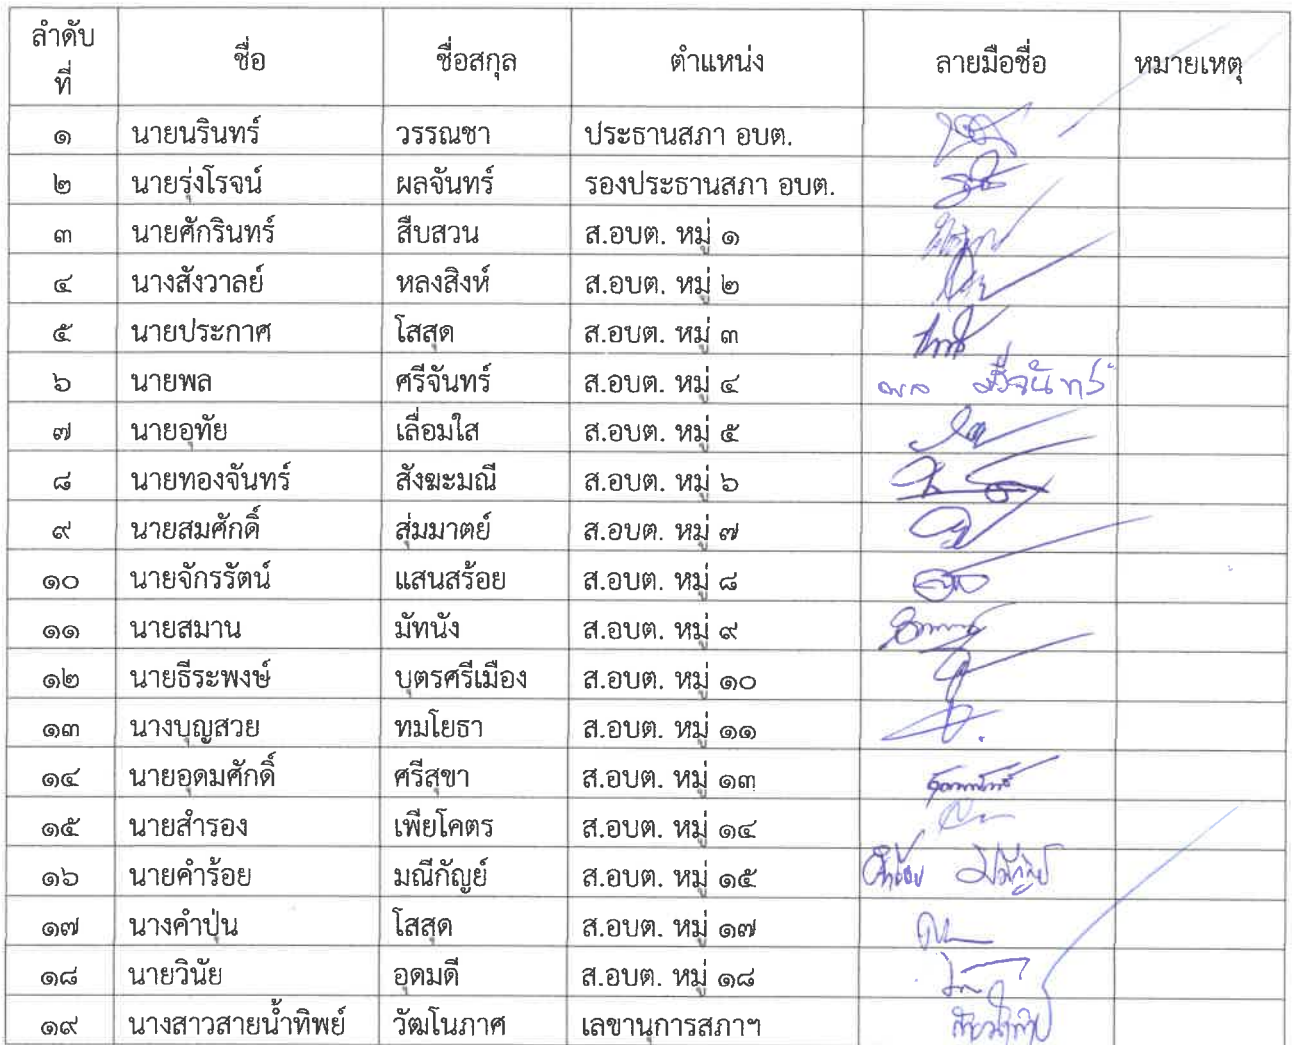 ลำดับที่ ชื่อ ชื่อสกุล ตำแหน่ง ลายมือชื่อ หมายเหตุ
๑ นายนรินทร์ วรรณชา ประธานสภา อบต.
๒ นายรุ่งโรจน์ ผลจันทร์ รองประธานสภา อบต.
๓ นายศักรินทร์ สืบสวน ส.อบต. หมู่ ๑
๔ นางสังวาลย์ หลงสิงห์ ส.อบต. หมู่ ๒
๕ นายประกาศ โสสุด ส.อบต. หมู่ ๓
๖ นายพล ศรีจันทร์ ส.อบต. หมู่ ๔ พล ศรีจันทร์
๗ นายอุทัย เลื่อมใส ส.อบต. หมู่ ๕
๘ นายทองจันทร์ สังฆะมณี ส.อบต. หมู่ ๖
๙ นายสมศักดิ์ สุ่มมาตย์ ส.อบต. หมู่ ๗
๑๐ นายจักรรัตน์ แสนสร้อย ส.อบต. หมู่ ๘
๑๑ นายสมาน มัทนัง ส.อบต. หมู่ ๙
๑๒ นายธีระพงษ์ บุตรศรีเมือง ส.อบต. หมู่ ๑๐
๑๓ นางบุญสวย ทมโยธา ส.อบต. หมู่ ๑๑
๑๔ นายอุดมศักดิ์ ศรีสุขา ส.อบต. หมู่ ๑๓
๑๕ นายสำรอง เพียโคตร ส.อบต. หมู่ ๑๔
๑๖ นายคำร้อย มณีกัญย์ ส.อบต. หมู่ ๑๕ คำร้อย มณีกัญย์
๑๗ นางคำปุ่น โสสุด ส.อบต. หมู่ ๑๗
๑๘ นายวินัย อุดมดี ส.อบต. หมู่ ๑๘
๑๙ นางสาวสายน้ำทิพย์ วัฒโนภาศ เลขานุการสภาฯ